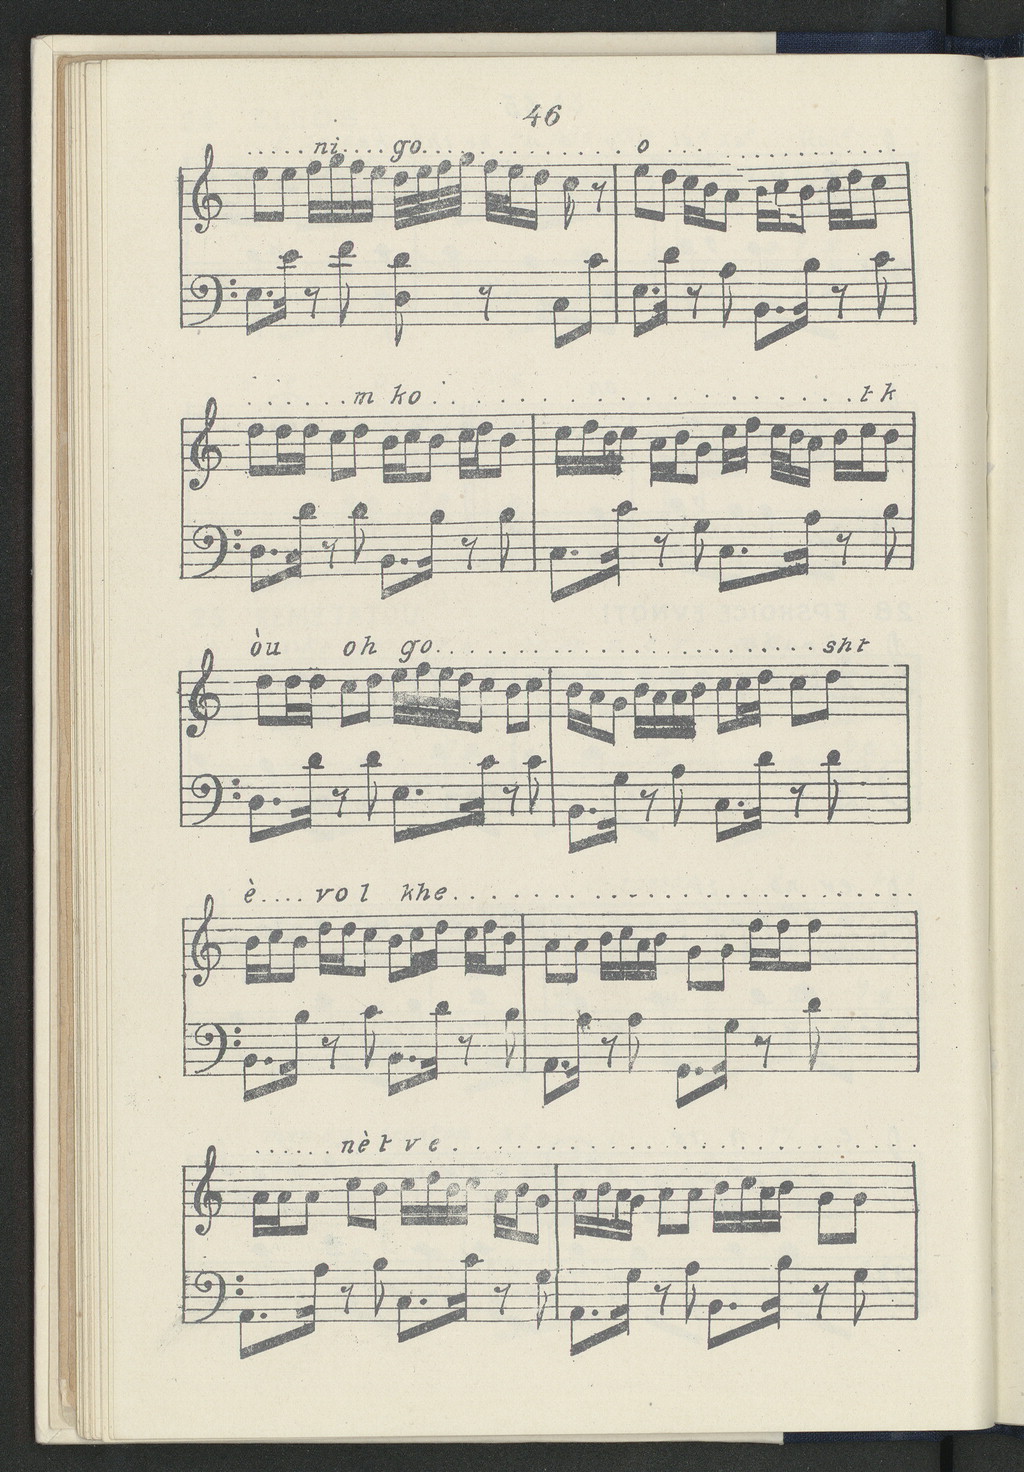 46
..... ni.... go............ o ............
....... m ko........................ t k
òu oh go........................ sht
è.... vo l khe........................
...... nèt ve........................